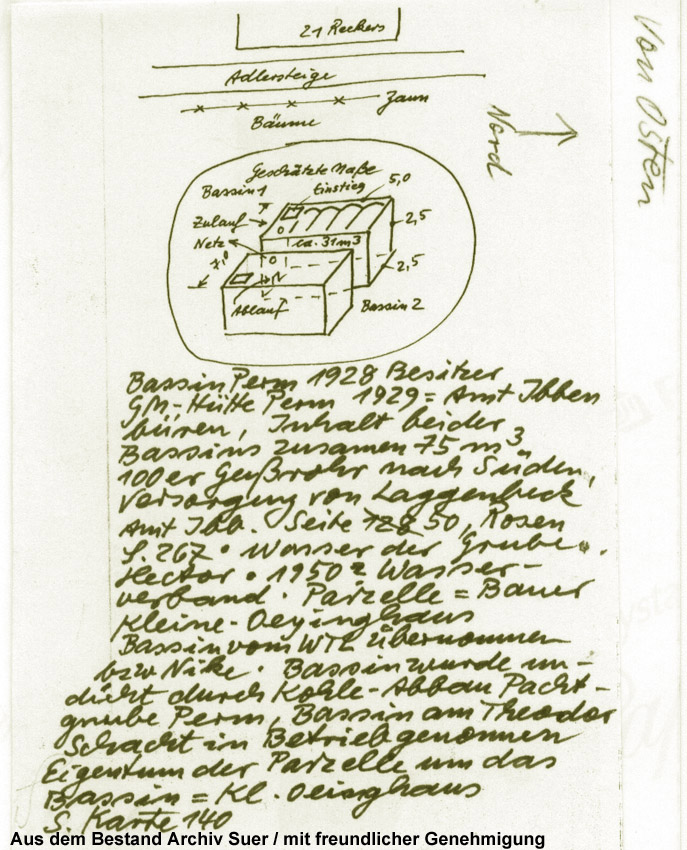 21 Reekers
Adlersteige
Zaun
Bäume
Nord
Von Osten
Geschätzte Maße
Bassin 1
Einstieg
5,0
Zulauf
2,5
Netz
ca. 31 m3
2,5
Ablauf
Bassin 2
Bassin Perm 1928 Besitzer
GM-Hütte Perm 1929 = Amt Ibben
büren, Inhalt beider
Bassins zusamen 75 m3
100er Gußrohr nach Süden,
Versorgung von Laggenbeck
Amt Ibb. Seite 50, Rosen
S. 267 • Wasser der Grube
Hector • 1950 = Wasser-
verband. Parzelle = Bauer
Kleine-Oeyinghaus
Bassin vom WTL übernommen
bzw Nike. Bassin wurde un-
dicht durch Kohle-Abbau Pacht-
grube Perm, Bassin am Theodor
Schacht in Betrieb genommen
Eigentum der Parzelle um das
Bassin = Kl. Oeinghaus
S. Karte 140
Aus dem Bestand Archiv Suer / mit freundlicher Genehmigung